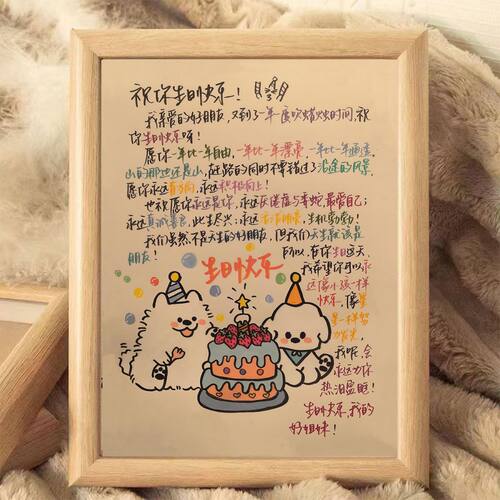 祝你生日快乐！
我亲爱的好朋友，又到了一年一度吹蜡烛时间，祝
你生日快乐呀！
愿你一年比一年自由，一年比一年漂亮，一年比一年通透，
山的那边还是山，在赶路的同时不要错过了沿途的风景，
愿你永远有方向，永远积极向上！
也祝愿你永远是你，永远灰度与幸蛇，最爱自己；
永远真诚善良，此生尽兴；永远赤诚，生机勃勃！
我们虽然不是天生的好朋友，但我们天生就该是
朋友！
所以，在你生日这天，
我希望你可以永
远像小孩一样
快乐，像星
星一样努
力发光，
我呢，会
永远为你
热泪盈眶！
生日快乐，我的
好姐妹！
生日快乐